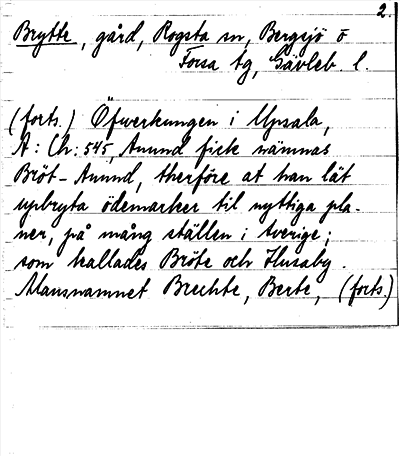 2.
Brytte, gård, Rogsta sn, Bergsjö o
Forsa tg, Gävleb. l.
(forts.) Öfwerkungen i Upsala,
A: Ch: 545, Anund fick nämnas
Bröt-Anund, therföre at han lät
upbryta ödemarker til nyttiga pla-
ner, på mång ställen i Sverige;
som kallades Bröte och Husaby.
Mansnamnet Brechte, Berte, (forts.)